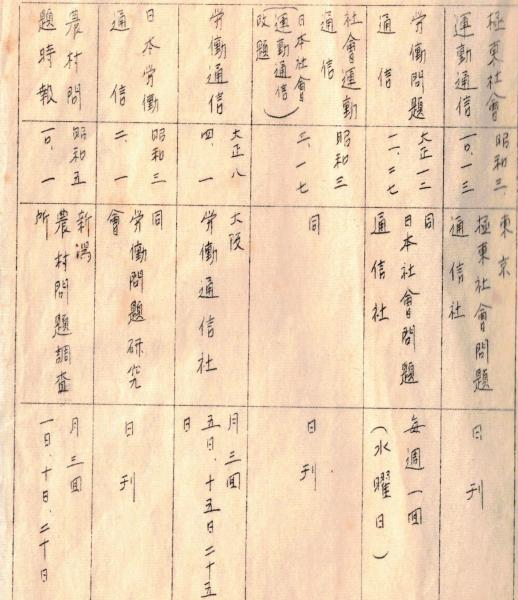 極東社會
運動通信
昭和三、
一〇、一三
東京
極東社會問題
通信社
日刊
労働問題
通信
大正一二
一一、二七
同
日本社會問題
通信社
毎週一回
(水曜日)
社會運動
通信
(日本社會
運動通信)
改題
昭和三
二、一七
同
日刊
労働通信
大正八
四、一
大阪
労働通信社
月三回
五日、十五日二十五
日
日本労働
通信
昭和三
二、一
同
労働問題研究
會
日刊
農村問
題時報
昭和五
一〇、一
新潟
農村問題調査
所
月三回
一日、十日、二十日